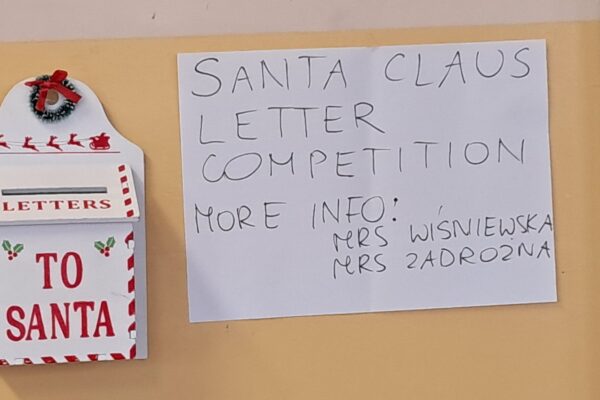 LETTERS
TO
SANTA
SANTA CLAUS
LETTER
COMPETITION
MORE INFO:
MRS WIŚNIEWSKA
MRS ZADROŻNA